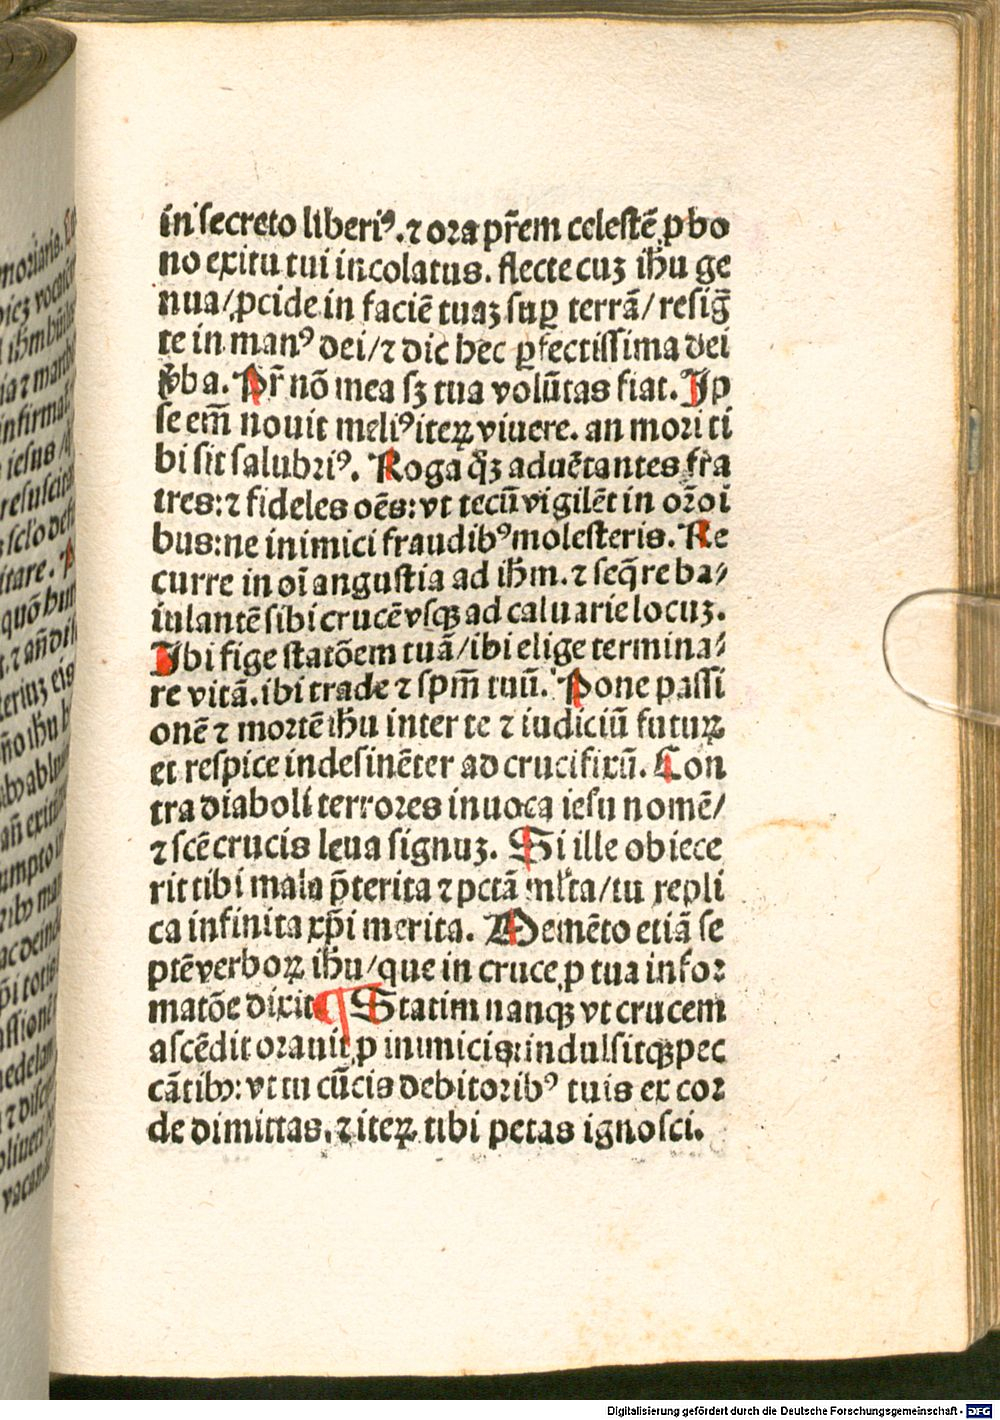 in secreto liberiꝰ. ⁊ ora pr̃em celestẽ ꝓ bo
no exitu tui incolatus. flecte cuꝫ ih̃u ge
nua/ ꝓcide in faciẽ tuaꝫ suꝑ terrã/ resig̃
te in manꝰ dei/ ⁊ dic hec ꝑfectissima dei
v̾ba. Pr̃ nõ mea sꝫ tua volũtas fiat. Ip
se em̃ nouit meliꝰ iteꝝ viuere. an mori ti
bi sit salubriꝰ. Roga q̃ꝫ aduẽtantes fra
tres: ⁊ fideles oẽs: vt tecũ vigilẽt in or̃oi
bus: ne inimici fraudibꝰ molesteris. Re
curre in oĩ angustia ad ih̃m. ⁊ seq̃re ba⸗
iulantẽ sibi crucẽ vsqꝫ ad caluarie locuꝫ.
Ibi fige statõem tuã/ ibi elige termina⸗
re vitã. ibi trade ⁊ sp̃m tuũ. Pone passi
onẽ ⁊ mortẽ ih̃u inter te ⁊ iudiciũ futuꝝ
et respice indesinẽter ad crucifixũ. Con
tra diaboli terrores inuoca iesu nomẽ/
⁊ scẽ crucis leua signuꝫ. Si ille obiece
rit tibi mala p̃terita ⁊ pctã ml̃ta/ tu repli
ca infinita xp̃i merita. Memẽto etiã se
ptẽ verboꝝ ih̃u/ que in cruce ꝓ tua infor
matõe dixit ¶ Statim nanqꝫ vt crucem
ascẽdit orauit ꝓ inimicis: indulsitqꝫ pec
cãtibꝫ: vt tu cũcis debitoribꝰ tuis ex cor
de dimittas. ⁊ iteꝝ tibi petas ignosci.
Digitalisierung gefördert durch die Deutsche Forschungsgemeinschaft - DFG